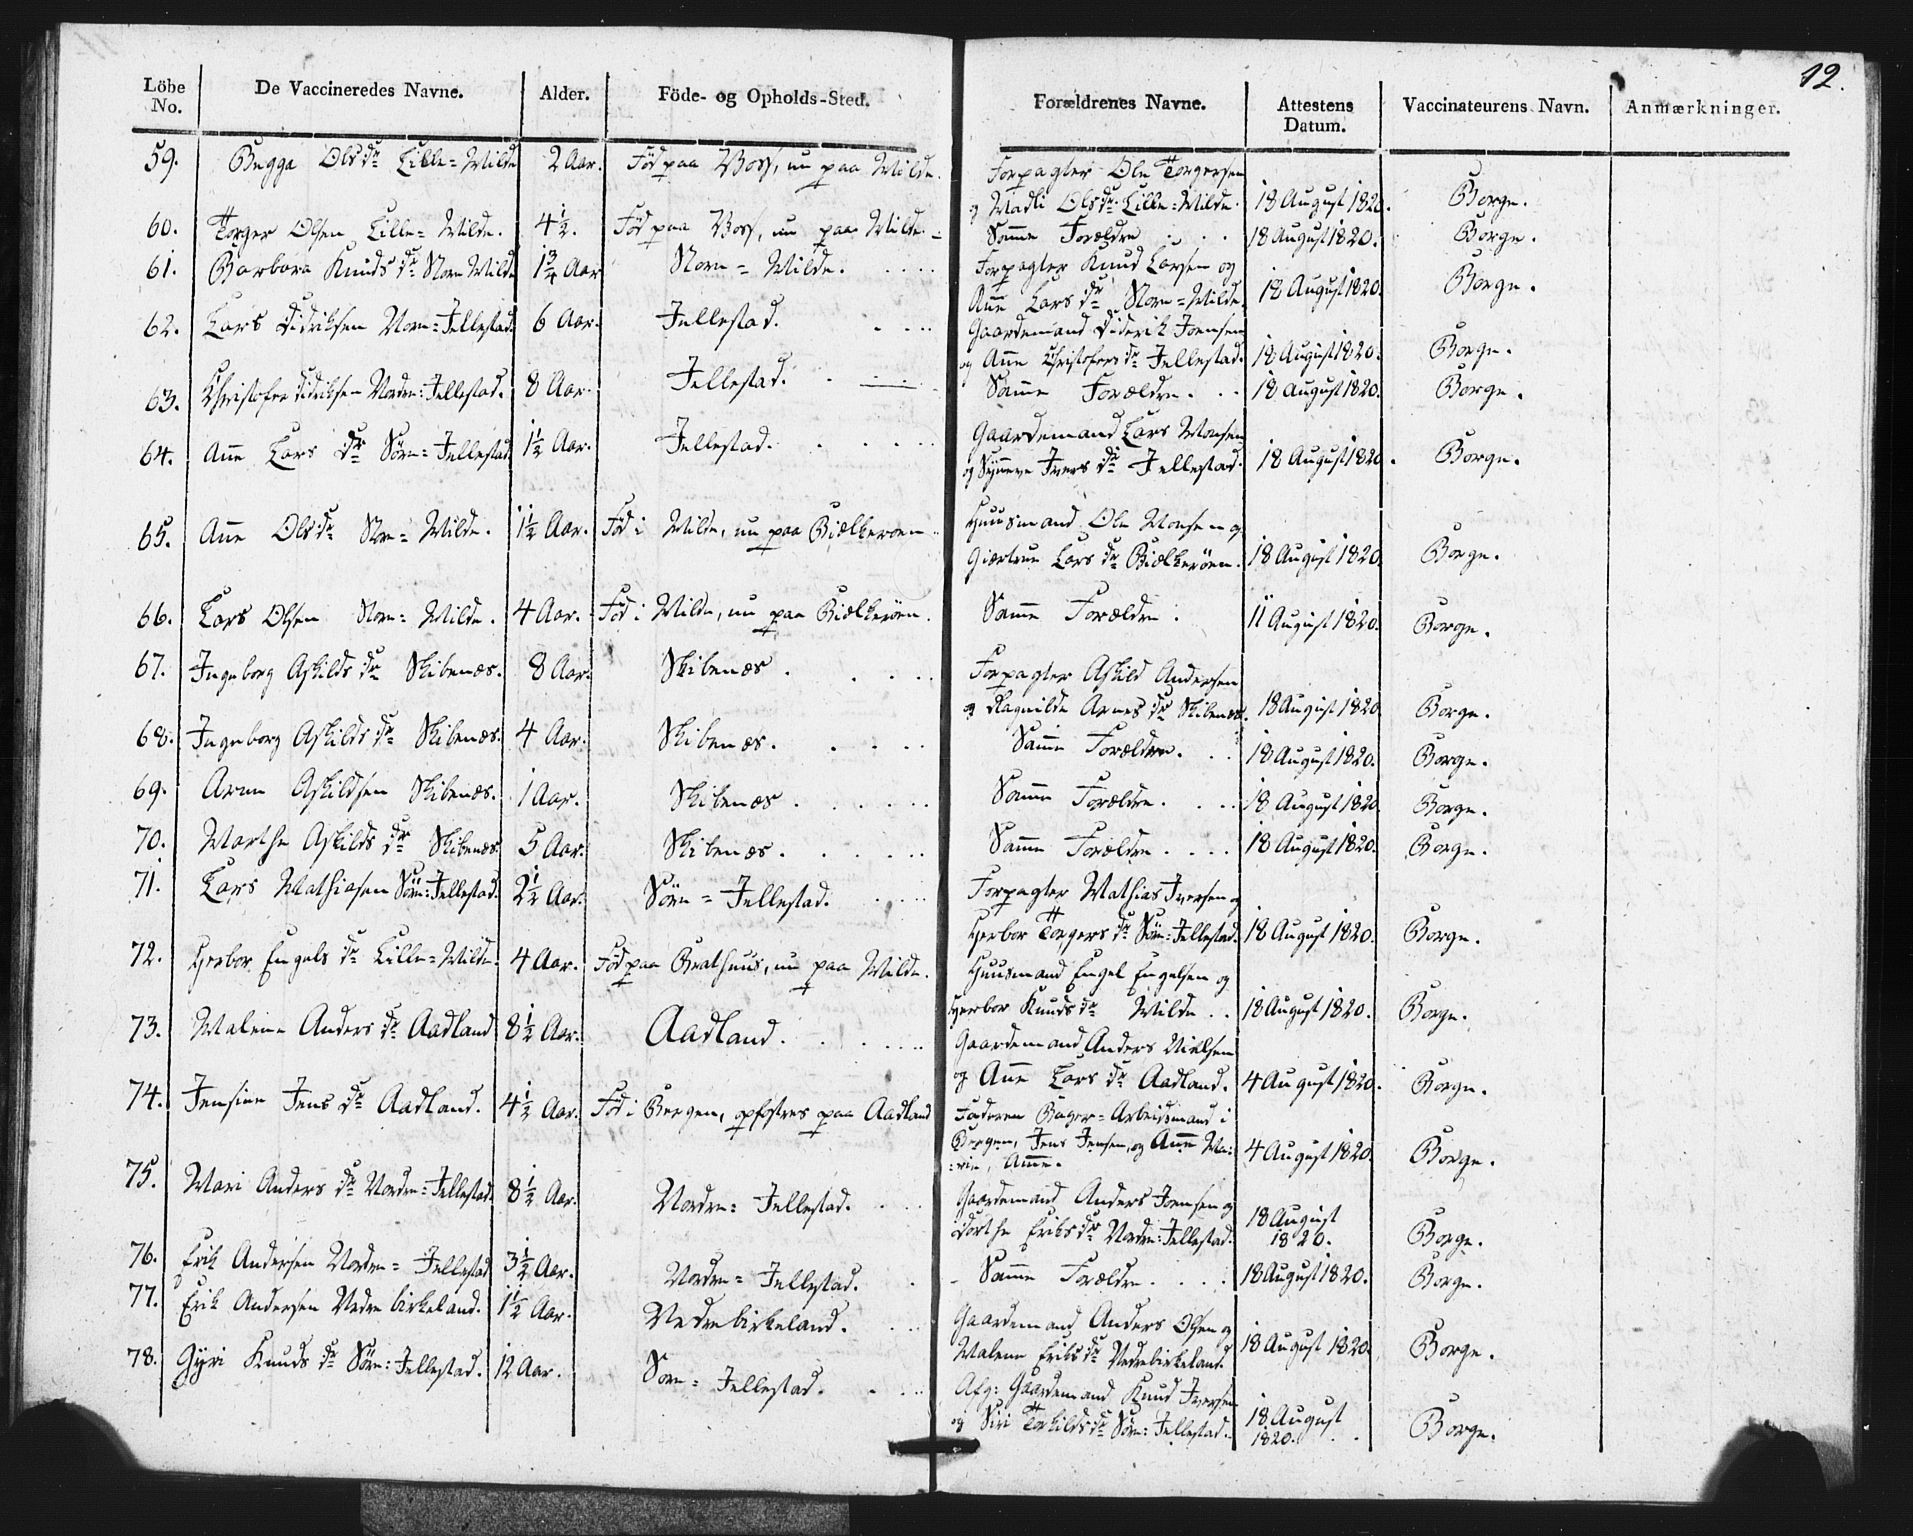 12.
Löbe No. | De Vaccineredes Navne. | Alder. | Föde- og Opholds-Sted. | Forældrenes Navne. | Attestens Datum. | Vaccinateurens Navn. | Anmærkninger.
59. Brygga Ols dr Lille=Milde 2 Aar. Fød paa Voss, nu paa Milde. Forpagter Ole Torgersen
og Madli Ols dr Lille=Milde. 18 August 1820. Borge.
60. Torger Olsen Lille=Milde. 4½. Fød paa Voss, nu paa Milde. Samme Forældre 18 August 1820. Borge.
61. Barbara Knuds dr Store Milde 1¾ Aar Store=Milde. Forpagter Knud Larsen og
Anne Lars dr Store=Milde 18 August 1820. Borge.
62. Lars Didriksen Norre=Jellestad. 6 Aar. Jellestad. Gaardemand Diderik Joensen
og Anne Christofers dr Jellestad. 18 August 1820. Borge.
63. Christofer Didriksen Nordre=Jellestad. 8 Aar. Jellestad. Samme Forældre. 18 August 1820. Borge.
64. Anne Lars dr Søre=Jellestad 1½ Aar. Jellestad. Gaardemand Lars Monsen
og Synneve Ivers dr Jellestad. 18 August 1820. Borge.
65. Anne Ols dr Store=Milde. 1½ Aar. Fød i Milde, nu paa Bielkeroen Huusmand Ole Monsen og
Giertrue Lars dr Bielkerøen. 18 August 1820. Borge.
66. Lars Olsen Store=Milde. 4 Aar. Fød i Milde, nu paa Bielkerøen. Samme Forældre. 11 August 1820. Borge.
67. Ingeborg Askilds dr Skibenæs. 8 Aar. Skibenæs. Forpagter Askild Andersen
og Ragnilde Arnes dr Skibenæs. 18 August 1820 Borge.
68. Ingeborg Askilds dr Skibenæs. 4 Aar. Skibenæs. Samme Forældre. 18 August 1820. Borge.
69. Arne Askildsen Skibenæs. 1 Aar. Skibenæs. Samme Forældre. 18 August 1820 Borge.
70. Marthe Askilds dr Skibenæs. 5 Aar. Skibenæs. Samme Forældre. 18 August 1820. Borge.
71. Lars Mathiasen Søre=Jellestad. 2½ Aar. Søre=Jellestad. Forpagter Mathias Iversen og
Herbor Torgers dr Søre=Jellestad. 18 August 1820. Borge.
72. Herbor Engels dr Lille=Milde. 4 Aar. Fød paa Grathuus, nu paa Milde. Huusmand Engel Engelsen og
Herbor Knuds dr Milde 18 August 1820. Borge.
73. Malene Anders dr Aadland 8½ Aar. Aadland. Gaardemand Anders Nielsen
og Anne Lars dr Aadland. 4 August 1820. Borge.
74. Jensine Jens dr Aadland. 4½ Aar. Fød i Bergen, opfostres paa Aadland Faderen Bager=Arbeidsmand i
Bergen, Jens Jensen, og Anne Ma=
=rie, Amme. 4 August 1820. Borge.
75. Mari Anders dr Nordre=Jellestad. 8½ Aar. Nordre=Jellestad. Gaardemand Anders Joensen og
Dorthe Eriks dr Nordre=Jellestad. 18 August
1820. Borge.
76. Erik Andersen Nordre=Jellestad 3½ Aar. Nordre=Jellestad. Samme Forældre. 18 August 1820. Borge.
77. Erik Andersen Nedre birkeland. 1½ Aar. Nedrebirkeland. Gaardemand Anders Olsen og
Malene Eriks dr Nedrebirkeland. 18 August 1820. Borge.
78. Gyri Knuds dr Søre=Jellestad. 12 Aar. Sore=Jellestad. Afg: Gaardemand Knud Iversen
og Siri Torkilds dr Søre=Jellestad. 18 August
1820. Borge.